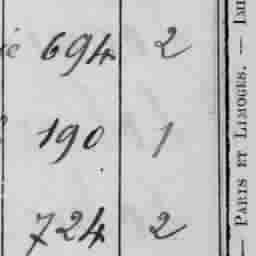 694 2
190 1
724 2
— PARIS ET LIMOGES. —